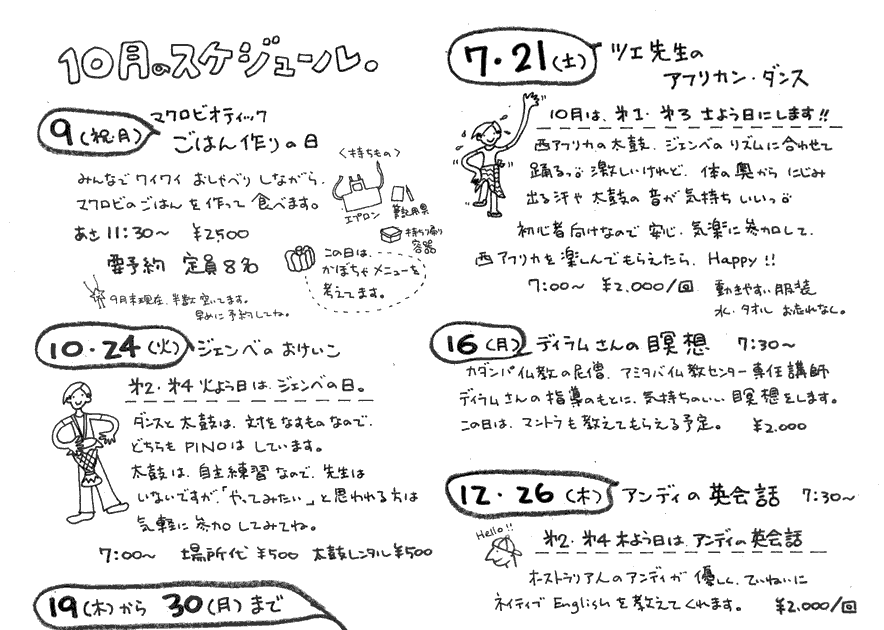 10月のスケジュール。
9(祝・月) マクロビオティック
ごはん作りの日
みんなでワイワイ おしゃべりしながら、
マクロビのごはんを作って食べます。
あさ11:30〜 ¥2500
要予約 定員8名
9月末現在、半数空いてます。
早めに予約してね。
<持ちもの>
エプロン
筆記用具
持ち帰り
容器
この日は、
かぼちゃメニューを
考えてます。
10・24(火) ジェンベのおけいこ
第2・第4火よう日は、ジェンベの日。
ダンスと太鼓は、対をなすものなので、
どちらもPINOはしています。
太鼓は、自主練習なので、先生は
いないですが、「やってみたい」と思われる方は
気軽に参加してみてね。
7:00〜 場所代¥500 太鼓レンタル¥500
19(木)から 30(月)まで
7・21(土) ツェ先生の
アフリカン・ダンス
10月は、第1・第3 土よう日にします!!
西アフリカの太鼓、ジェンベのリズムに合わせて
踊るっ 激しいけれど、体の奥から にじみ
出る汗や 太鼓の音が 気持ちいいっ
初心者向けなので 安心、気楽に参加して、
西アフリカを楽しんでもらえたら、Happy!!
7:00〜 ¥2.000/回
動きやすい服装
水、タオル お忘れなく。
16(月) ディラムさんの瞑想 7:30〜
カダンパ仏教の尼僧、アミタバイ仏教センター専任講師
ディラムさんの指導のもとに、気持ちのいい瞑想をします。
この日は、マントラも教えてもらえる予定。 ¥2.000
12・26(木) アンディの英会話 7:30〜
Hello!!
第2・第4木よう日は、アンディの英会話
オーストラリア人のアンディが優しく、ていねいに
ネイティブEnglishを教えてくれます。 ¥2.000/回